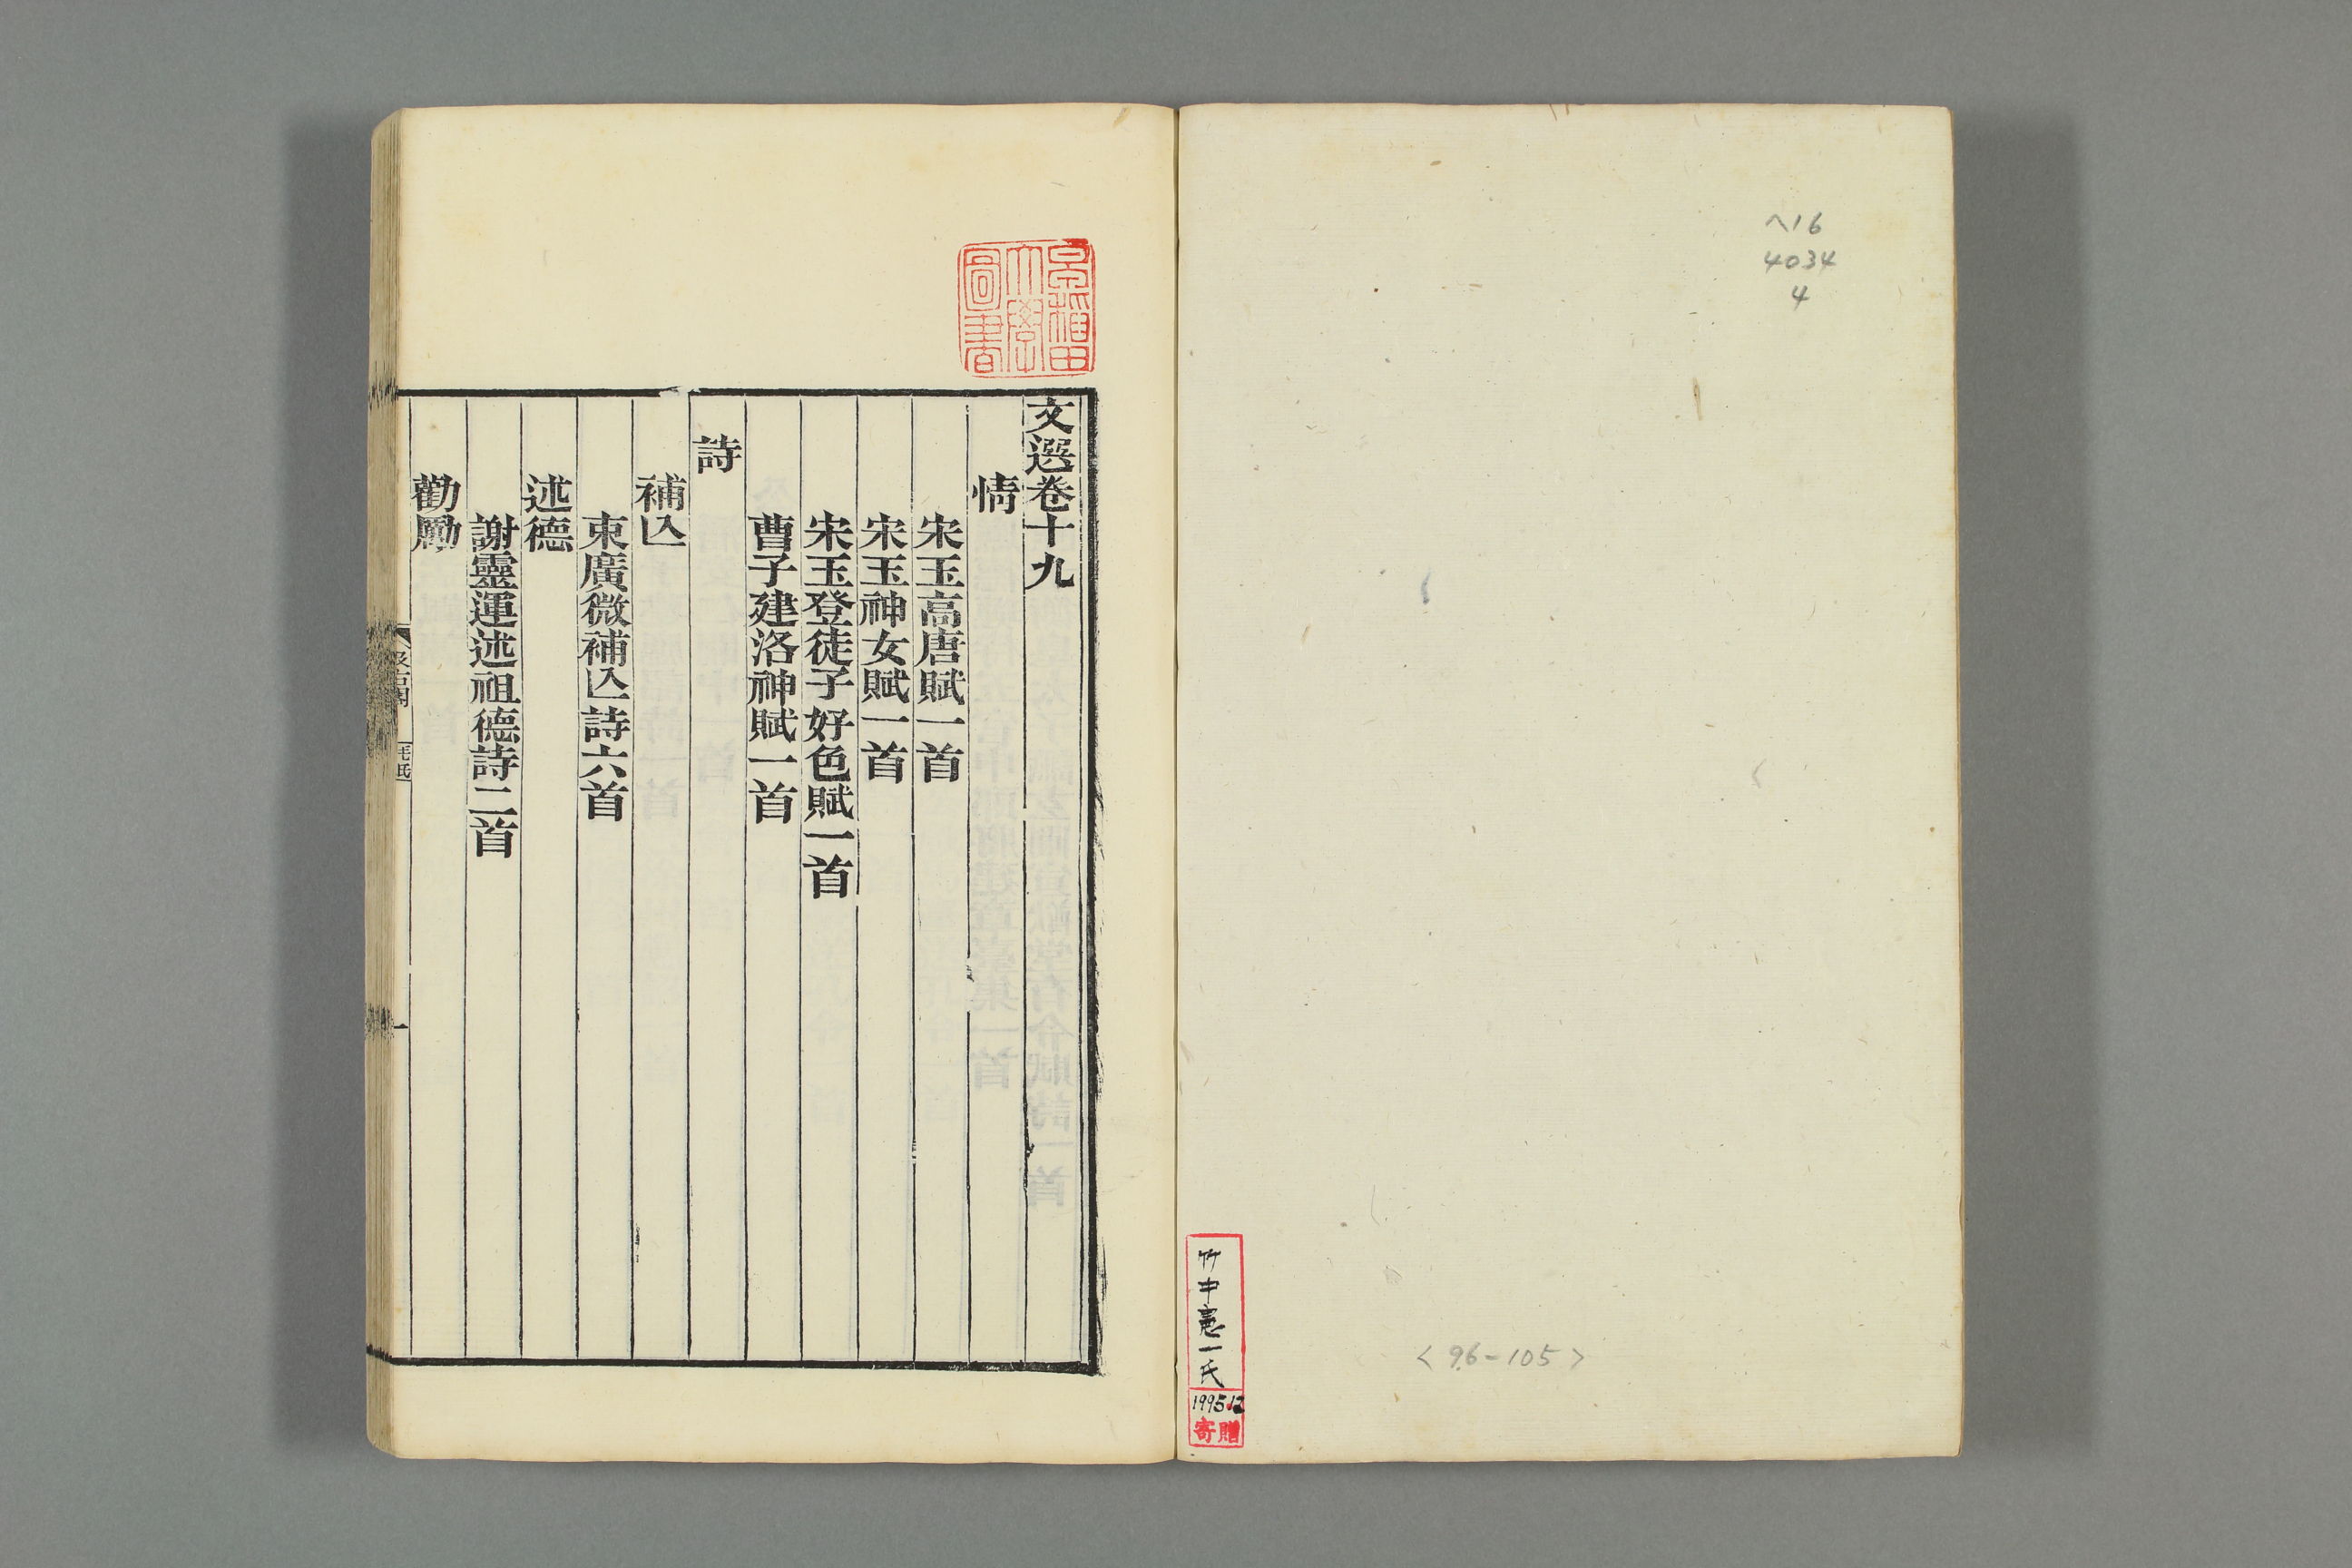 ヘ16
4034
4
竹中憲一氏
1995.12
寄贈
<96-105>
早稲田大學圖書
文選卷十九
情
宋玉高唐賦一首
宋玉神女賦一首
宋玉登徒子好色賦一首
曹子建洛神賦一首
詩
補亾
束廣微補亾詩六首
述德
謝靈運述祖德詩二首
勸勵
一